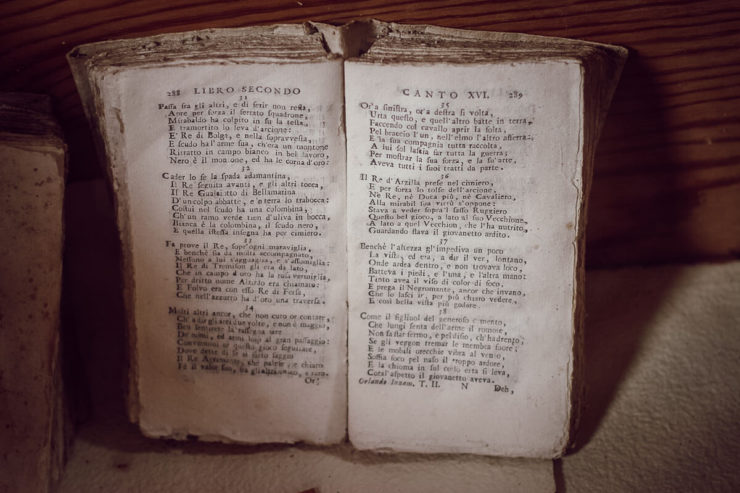 288 LIBRO SECONDO
31
Passa fra gli altri, e di ferir non resta,
Apre per forza il serrato squadrone,
Mirabaldo ha colpito in su la testa,
E tramortito lo leva d'arcione:
E' Re di Bolga, e nella sopravvesta,
E scudo ha l'arme sua, ch'era un montone
Ritratto in campo bianco in bel lavoro,
Nero è il montone, ed ha le corna d'oro:
32
Cader lo fe la spada adamantina,
Il Re seguita avanti, e gli altri tocca,
Il Re Gualciotto di Bellamarina
D'un colpo abbatte, e'n terra lo trabocca:
Costui nel scudo ha una colombina,
Ch'un ramo verde tien d'uliva in bocca,
Bianca è la colombina, il scudo nero,
E quella stessa insegna ha per cimiero.
33
Fa prove il Re, sopr'ogni maraviglia,
E benchè sia da molti accompagnato,
Nessuno a lui s'agguaglia, e s'assomiglia:
Il Re di Tremison gli era da lato,
Che in campo d'oro ha la rosa vermiglia,
Per dritto nome Alzirdo era chiamato:
E Folvo era con esso Re di Fersa,
Che nell'azzurro ha d'oro una traversa.
34
Molti altri ancor, che non curo or contare,
Ch'a dir gli arei due volte, e non è maggio,
Ben sentiste la rassegna fare
De' nomi, ed armi loro al gran passaggio:
Convienmi or questo gioco seguitare,
Dove dette di se sì fatto saggio
Il Re Agramante, che palese e chiaro
Fè il valor suo, fra gli altri unico, e raro.
Or'
CANTO XVI. 289
35
Or'a sinistra, or'a destra si volta,
Urta questo, e quell'altro batte in terra,
Faccendo col cavallo aprir la folta,
Pel braccio l'un, nell'elmo l'altro afferra:
E la sua compagnia tutta raccolta,
A lui sol lascia far tutta la guerra;
Per mostrar la sua forza, e la su'arte,
Aveva tutti i suoi tratti da parte.
36
Il Re d'Arzilla prese nel cimiero,
E per forza lo tolse dell'arcione,
Nè Re, nè Duca più, nè Cavaliero,
Alla mirabil sua virtù s'oppone:
Stava a veder sopra'l sasso Ruggiero
Questo bel gioco, a lato al suo Vecchione,
A lato a quel Vecchion, che l'ha nutrito,
Guardando stava il giovanetto ardito.
37
Benchè l'altezza gl'impediva un poco
La vista, ed era, a dir il ver, lontano,
Onde ardea dentro, e non trovava loco,
Batteva i piedi, e l'una, e l'altra mano:
Tinto avea il viso di color di foco,
E prega il Negromante, ancor che invano,
Che lo lasci ir, per più chiaro vedere,
E così bella vista più godere.
38
Come il figliuol del generoso armento,
Che lungi senta dell'arme il romore,
Non sa star fermo, e pel disio, ch'ha drento,
Se gli veggon tremar le membra fuore;
E le mobili orecchie vibra al vento,
Soffia foco pel naso il troppo ardore,
E la chioma in sul collo erta si leva,
Cotal'aspetto il giovanetto aveva.
Orlando Innam. T. II. N Deh,